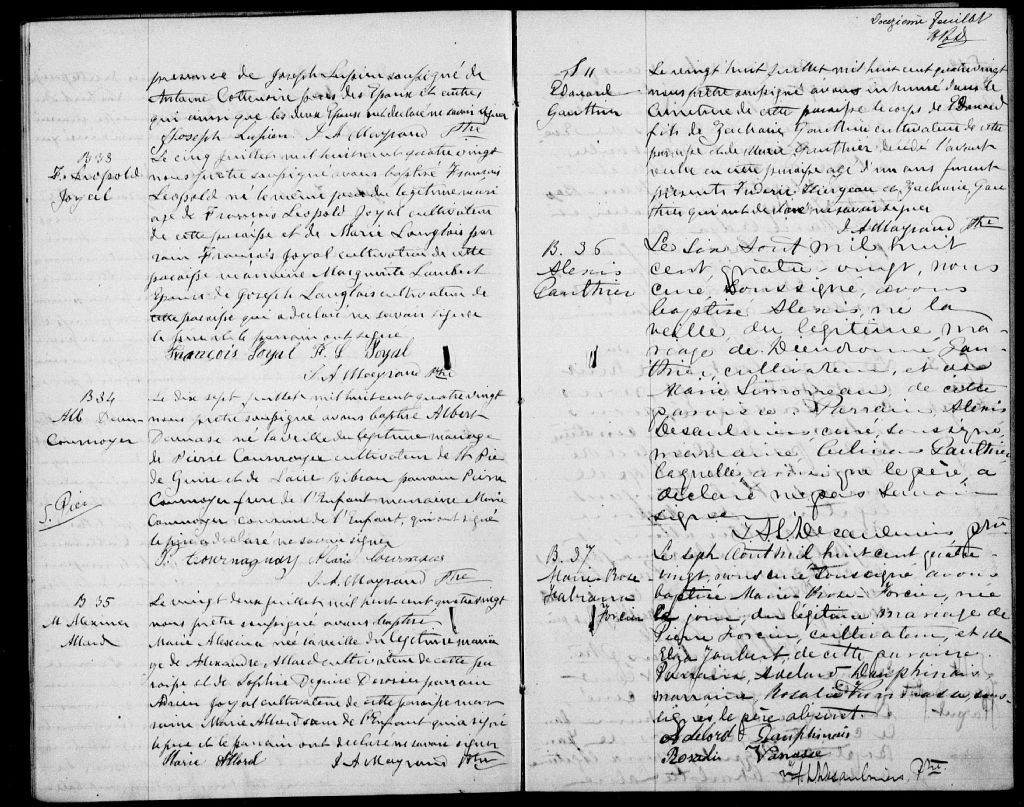 présence de Joseph Lupien soussigné de
Antoine Cottenoire père des Epoux et autres
qui ainsi que les deux Epoux ont déclaré ne savoir signer
Joseph Lupien J A Maynard Ptre
B 33
F. Léopold
Joyal
Le cinq juillet mil huit cent quatre vingt
nous prêtre soussigné avons baptisé François
Léopold né le même jour du légitime mari
age de François Léopold Joyal cultivateur
de cette paroisse et de Marie Langlois par
rain François Joyal cultivateur de cette
paroisse marraine Marguerite Lambert
Epouse de Joseph Langlois cultivateur de
cette paroisse qui a déclaré ne savoir signer
le père et le parrain ont signé
François Joyal F. L Joyal
J. A Maynard Ptre
B 34
Alb Damase
Cournoyer
S. Pier
Le dix sept juillet mil huit cent quatre vingt
nous prêtre soussigné avons baptisé Albert
Damase né la veille du légitime mariage
de Pierre Cournoyer cultivateur de St Pie
de Guire et de Laure parrain Pierre
Cournoyer frère de l'Enfant marraine Marie
Cournoyer de l'Enfant, qui ont signé
le père a déclaré ne savoir signer
P. Cournoyer Marie Cournoyer
J. A. Maynard Ptre
B 35
M
Allard
Le vingt deux juillet mil huit cent quatre vingt
nous prêtre soussigné avons baptisé
Marie née la veille du légitime maria
ge de Alexandre Allard cultivateur de cette pa
roisse et de Sophie parrain
Joyal cultivateur de cette paroisse mar
raine Marie Allard soeur de l'Enfant qui a signé
le père et le parrain ont déclaré ne savoir signer
Marie Allard J A Maynard Ptre
Douzième feuillet
S 11
Edouard
Gauthier
Le vingt huit juillet mil huit cent quatre vingt
nous prêtre soussigné avons inhumé dans le
cimetière de cette paroisse le corps de Edouard
fils de Zacharie Gauthier cultivateur de cette
paroisse et de Marie Gauthier décédé l'avant
veille en cette paroisse agé d'un ans furent
présents et Zacharie Gau
thier qui ont déclaré ne savoir signer
J A Maynard Ptre
B. 36
Alexis
Gauthier
Le six Aout mil huit
cent quatre-vingt, nous
curé soussigné, avons
baptisé Alexis, né la
veille, du légitime ma-
riage de Dieudonné Gau-
thier, cultivateur, et de
Marie Simoneau, de cette
paroisse. Parrain, Alexis
Desaulniers, curé, soussigné,
marraine Gauthier
laquelle a signé le père, a
déclaré ne pas savoir
signer
J. A. L. Desaulniers, Ptre
B. 37
Marie Rose
Fabiana
Forcier
Le sept Aout mil huit cent quatre-
vingt, nous curé soussigné, avons
baptisé Marie Rose Forcier, née
le jour, du légitime mariage de
Pierre Forcier, cultivateur, et de
Eliza Joubert, de cette paroisse.
Parrain, Adelard Dauphinais
marraine, Rosalie Vanasse, sous-
signés, le père absent.
Adelord Dauphinais
Rosalie Vanasse
J. A. L. Desaulniers, Ptre